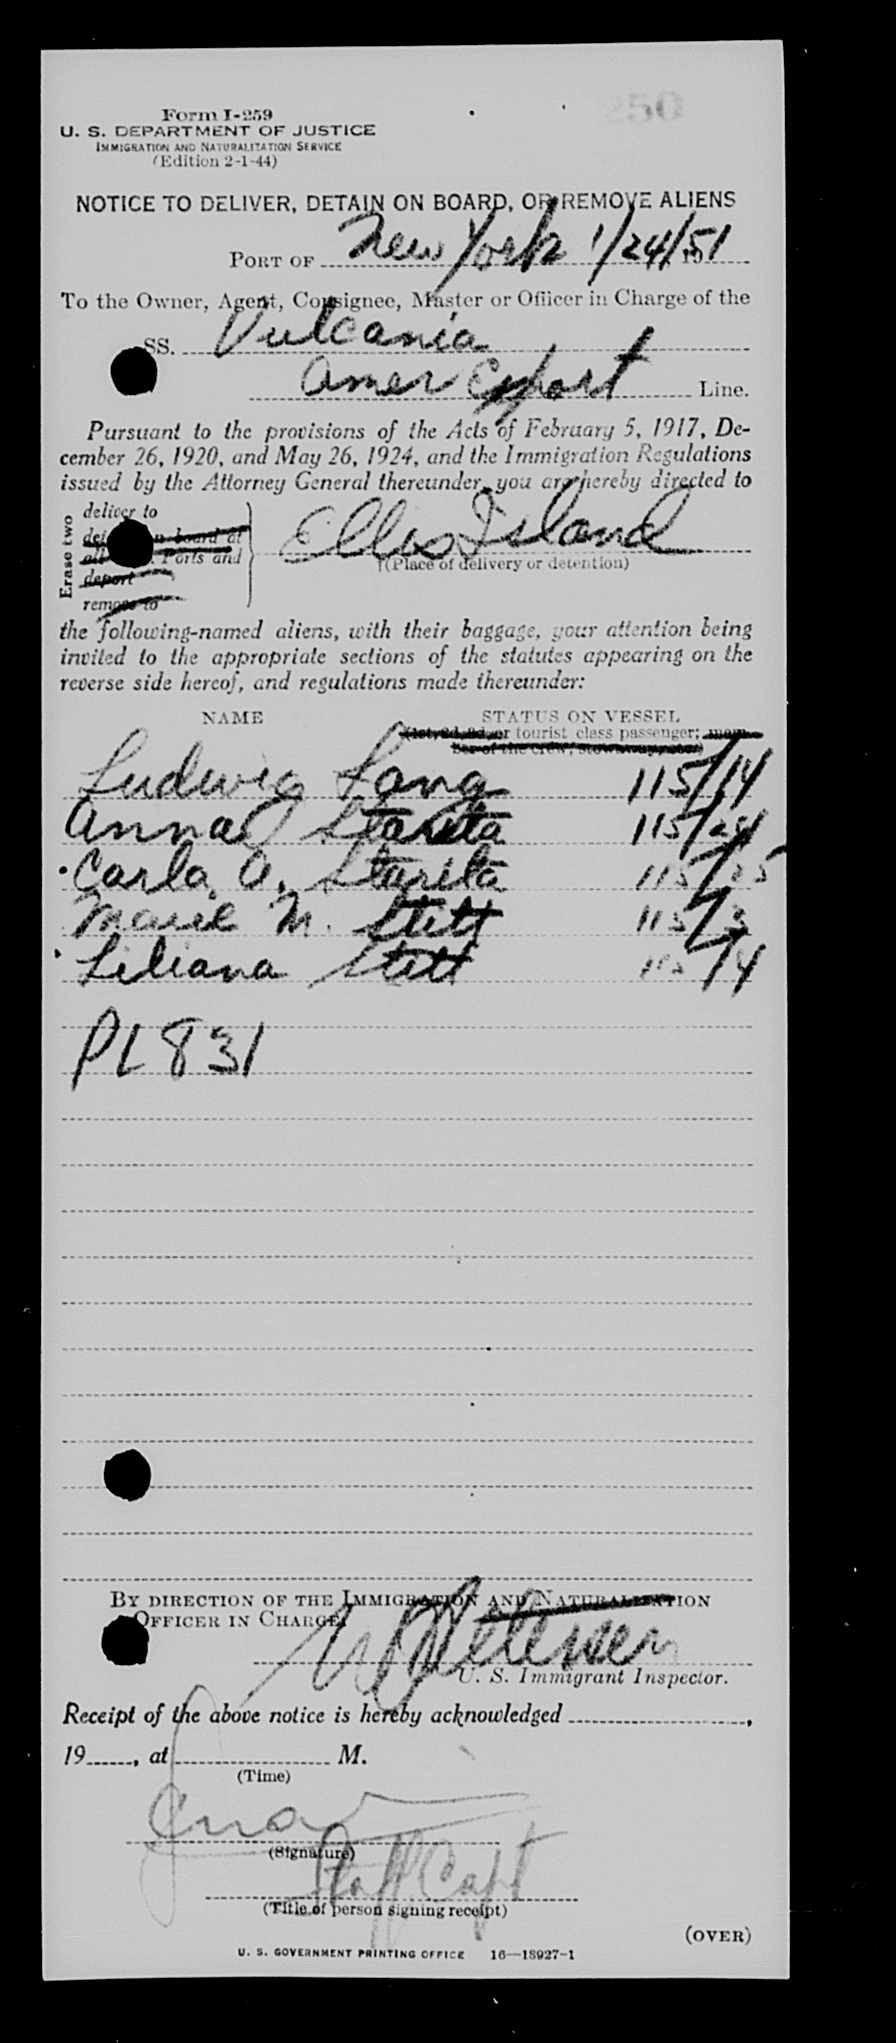 250
Form I-259
U. S. DEPARTMENT OF JUSTICE
IMMIGRATION AND NATURALIZATION SERVICE
(Edition 2-1-44)
NOTICE TO DELIVER, DETAIN ON BOARD, OR REMOVE ALIENS
PORT OF New York 1/24/51
To the Owner, Agent, Consignee, Master or Officer in Charge of the
SS. Vulcania
Amer Export Line.
Pursuant to the provisions of the Acts of February 5, 1917, De-
cember 26, 1920, and May 26, 1924, and the Immigration Regulations
issued by the Attorney General thereunder, you are hereby directed to
Erase two
deliver to
n board at
all Ports and
deport
remove to
Ellis Island
(Place of delivery or detention)
the following-named aliens, with their baggage, your attention being
invited to the appropriate sections of the statutes appearing on the
reverse side hereof, and regulations made thereunder:
NAME STATUS ON VESSEL
(1st, 2d, 3d, or tourist class passenger; mem-
ber of the crew; stowaway, etc.)
Ludwig Lang 115/14
Anna Starita 115/24
Carla A. Starita 115/25
Marie M. Stitt 115/3
Liliana Stitt 115/4
PL 831
BY DIRECTION OF THE IMMIGRATION AND NATURALIZATION
OFFICER IN CHARGE
Petersen
U. S. Immigrant Inspector.
Receipt of the above notice is hereby acknowledged
19, at M.
(Time)
(Signature)
Staff Capt
(Title of person signing receipt)
(OVER)
U. S. GOVERNMENT PRINTING OFFICE 16—18927-1